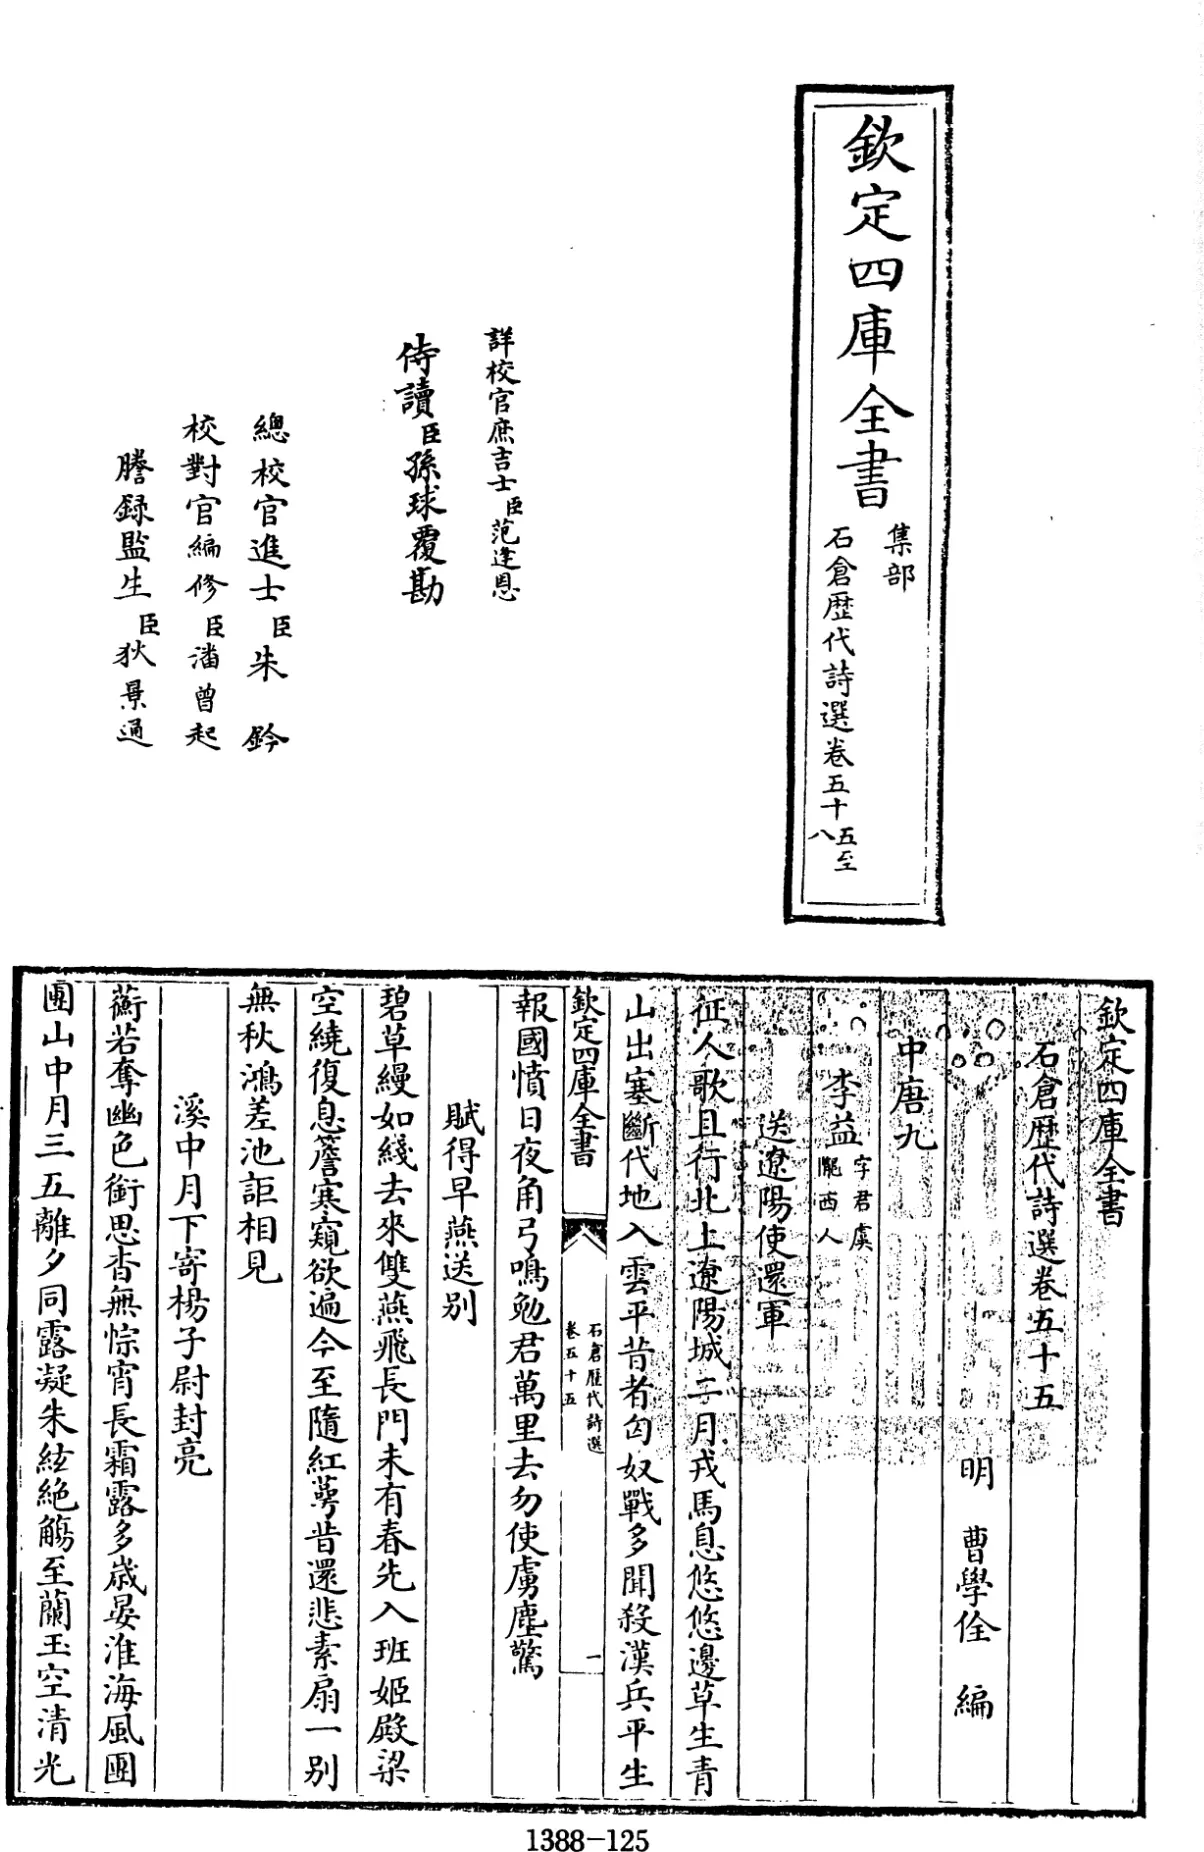 欽定四庫全書
集部
石倉歴代詩選卷五十五至八
詳校官庶吉士臣范逢恩
侍讀臣孫球覆勘
總校官進士臣朱鈐
校對官編修臣潘曾起
謄録監生臣狄景通
欽定四庫全書
石倉歴代詩選卷五十五
明 曹學佺 編
中唐九
李益 字君虞隴西人
送遼陽使還軍
征人歌且行北上遼陽城二月戎馬息悠悠邊草生青
山出塞斷代地入雲平昔者匈奴戰多聞殺漢兵平生
欽定四庫全書
石倉歴代詩選
卷五十五
一
報國憤日夜角弓鳴勉君萬里去勿使虜塵驚
賦得早燕送别
碧草縵如綫去來雙燕飛長門未有春先入班姬殿梁
空繞復息簷寒窺欲遍今至隨紅萼昔還悲素扇一别
無秋鴻差池詎相見
溪中月下寄楊子尉封亮
蘅若奪幽色銜思杳無悰宵長霜露多歲晏淮海風團
團山中月三五離夕同露凝朱絃絶觴至蘭玉空清光
1388-125